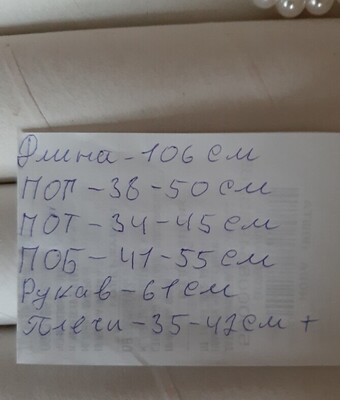 Длина - 106 см
ПОГ - 38 - 50 см
ПОТ - 34 - 45 см
ПОБ - 41 - 55 см
Рукав - 61 см
Плечи - 35 - 42 см +